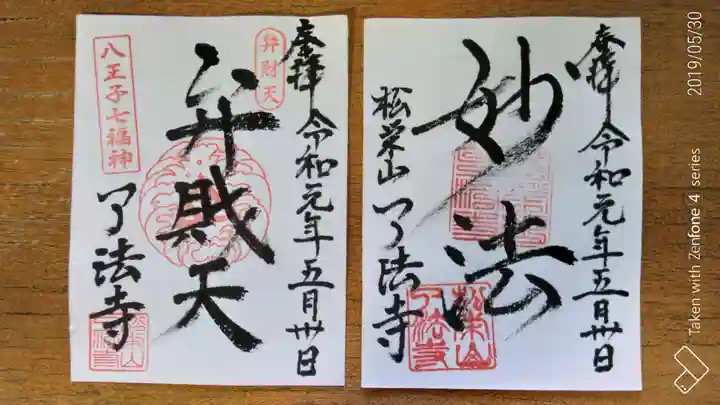 弁財天
奉拝 令和元年五月卅日
弁財天
八王子七福神
了法寺
奉拝 令和元年五月卅日
妙法
松栄山 了法寺
松栄山
了法寺
2019/05/30
Taken with Zenfone 4 series